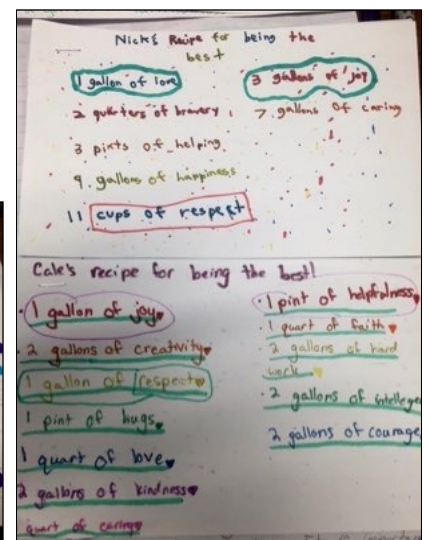 Nick's Recipe for being the
best
1 gallon of love
2 quarters of bravery
3 pints of helping
9. gallons of happiness
11 cups of respekt
3 gallons of joy
7 gallons of caring
Cale's recipe for being the best!
1 gallon of joy
2 gallons of creativity
1 gallon of respect
1 pint of hugs
1 quart of love
2 gallons of kindness
quart of caring
1 pint of helpfulness
1 quart of faith
2 gallons of hard
work
2 gallons of intellege
2 gallons of courage